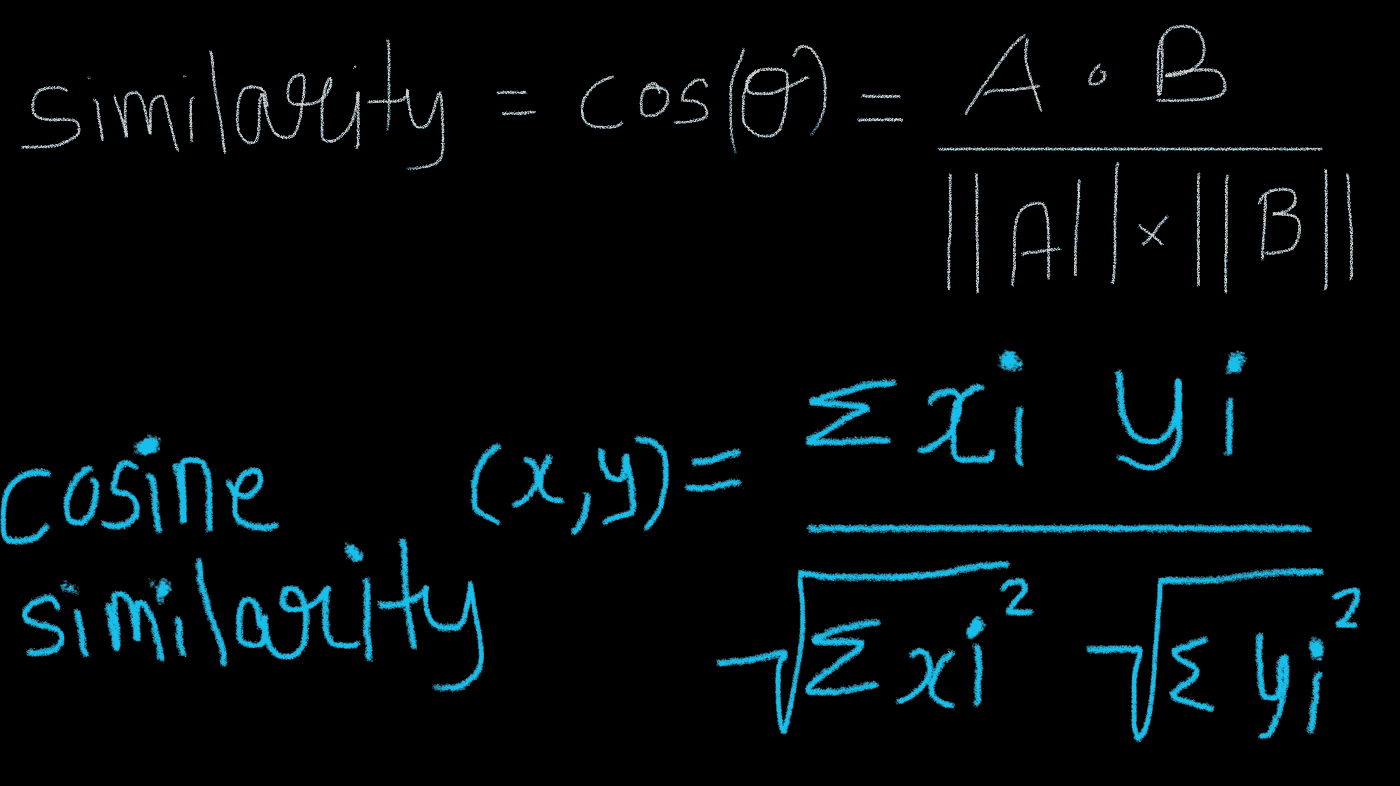 similarity = cos(θ) = A · B
||A|| × ||B||
cosine similarity (x,y) = Σ xi yi
√Σ xi² √Σ yi²